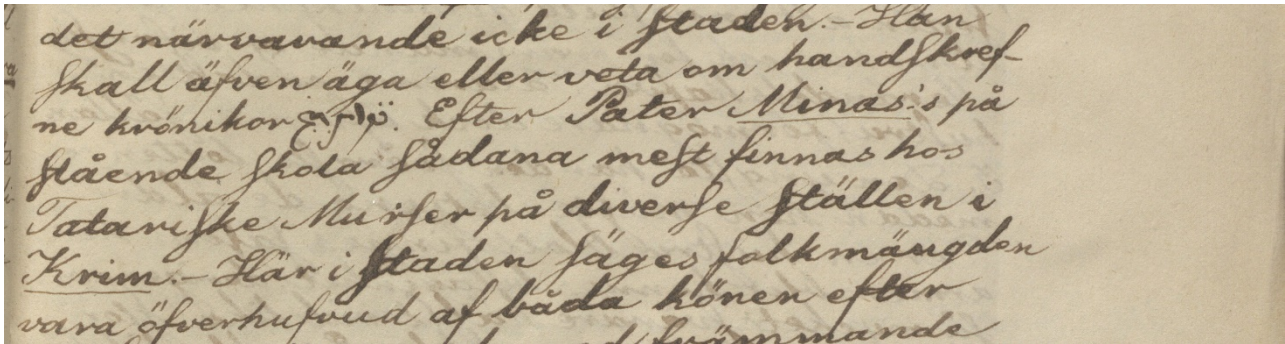 det närvarande icke i staden. – Han
skall äfven äga eller veta om handskref-
ne krönikor. Efter Pater Minas's på
stående skola sådana mest finnas hos
Tatariske Murser på diverse ställen i
Krim. – Här i staden säges folkmängden
vara öfverhufvud af båda könen efter
främmande